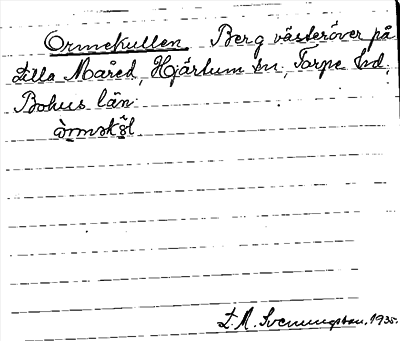 Ormekullen Berg västeröver på
Lilla Måred, Hjärtum sn, Torpe hd,
Bohus län.
òrmskø̄l
L. M. Svenungsson. 1935.